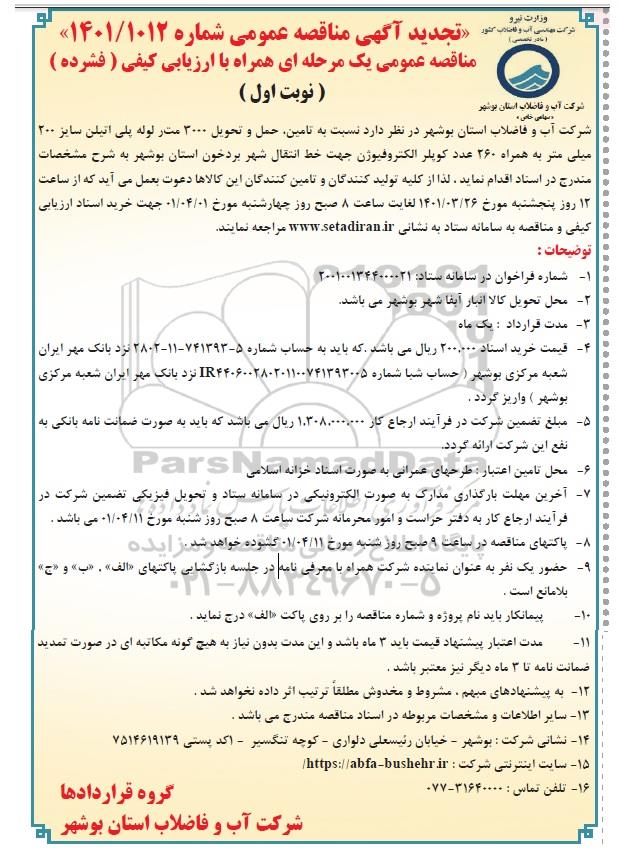 وزارت نیرو
شرکت مهندسی آب و فاضلاب کشور
( مادر تخصصی )
شرکت آب و فاضلاب استان بوشهر
«سهامی خاص»
«تجدید آگهی مناقصه عمومی شماره ۱۴۰۱/۱۰۱۲»
مناقصه عمومی یک مرحله ای همراه با ارزیابی کیفی ( فشرده )
( نوبت اول )
شرکت آب و فاضلاب استان بوشهر در نظر دارد نسبت به تامین، حمل و تحویل ۳۰۰۰ متر لوله پلی اتیلن سایز ۲۰۰
میلی متر به همراه ۲۶۰ عدد کوپلر الکتروفیوژن جهت خط انتقال شهر بردخون استان بوشهر به شرح مشخصات
مندرج در اسناد اقدام نماید ، لذا از کلیه تولید کنندگان و تامین کنندگان این کالاها دعوت بعمل می آید که از ساعت
۱۲ روز پنجشنبه مورخ ۱۴۰۱/۰۳/۲۶ لغایت ساعت ۸ صبح روز چهارشنبه مورخ ۰۱/۰۴/۰۱ جهت خرید اسناد ارزیابی
کیفی و مناقصه به سامانه ستاد به نشانی www.setadiran.ir مراجعه نمایند.
توضیحات :
۱- شماره فراخوان در سامانه ستاد: ۲۰۰۱۰۰۱۳۴۴۰۰۰۰۲۱
۲- محل تحویل کالا انبار آبفا شهر بوشهر می باشد.
۳- مدت قرارداد : یک ماه
۴- قیمت خرید اسناد ۲۰۰,۰۰۰ ریال می باشد .که باید به حساب شماره ۵-۷۴۱۳۹۳-۱۱-۲۸۰۲ نزد بانک مهر ایران
شعبه مرکزی بوشهر ( حساب شبا شماره IR۴۴۰۶۰۰۲۸۰۲۰۱۱۰۰۷۴۱۳۹۳۰۰۵ نزد بانک مهر ایران شعبه مرکزی
بوشهر ) واریز گردد .
۵- مبلغ تضمین شرکت در فرآیند ارجاع کار ۱,۳۰۸,۰۰۰,۰۰۰ ریال می باشد که باید به صورت ضمانت نامه بانکی به
نفع این شرکت ارائه گردد.
۶- محل تامین اعتبار : طرحهای عمرانی به صورت اسناد خزانه اسلامی
۷- آخرین مهلت بارگذاری مدارک به صورت الکترونیکی در سامانه ستاد و تحویل فیزیکی تضمین شرکت در
فرآیند ارجاع کار به دفتر حراست و امور محرمانه شرکت ساعت ۸ صبح روز شنبه مورخ ۰۱/۰۴/۱۱ می باشد .
۸- پاکتهای مناقصه در ساعت ۹ صبح روز شنبه مورخ ۰۱/۰۴/۱۱ گشوده خواهد شد .
۹- حضور یک نفر به عنوان نماینده شرکت همراه با معرفی نامه در جلسه بازگشایی پاکتهای «الف» , «ب» و «ج»
بلامانع است .
۱۰- پیمانکار باید نام پروژه و شماره مناقصه را بر روی پاکت «الف» درج نماید .
۱۱- مدت اعتبار پیشنهاد قیمت باید ۳ ماه باشد و این مدت بدون نیاز به هیچ گونه مکاتبه ای در صورت تمدید
ضمانت نامه تا ۳ ماه دیگر نیز معتبر باشد .
۱۲- به پیشنهادهای مبهم ، مشروط و مخدوش مطلقاً ترتیب اثر داده نخواهد شد .
۱۳- سایر اطلاعات و مشخصات مربوطه در اسناد مناقصه مندرج می باشد .
۱۴- نشانی شرکت : بوشهر - خیابان رئیسعلی دلواری - کوچه تنگسیر - ۱کد پستی ۷۵۱۴۶۱۹۱۳۹
۱۵- سایت اینترنتی شرکت : https://abfa-bushehr.ir/
۱۶- تلفن تماس : ۳۱۶۴۰۰۰۰-۰۷۷
گروه قراردادها
شرکت آب و فاضلاب استان بوشهر
ParsNamadData
۰۲۱-۸۸۳۴۹۶۷۰-۵